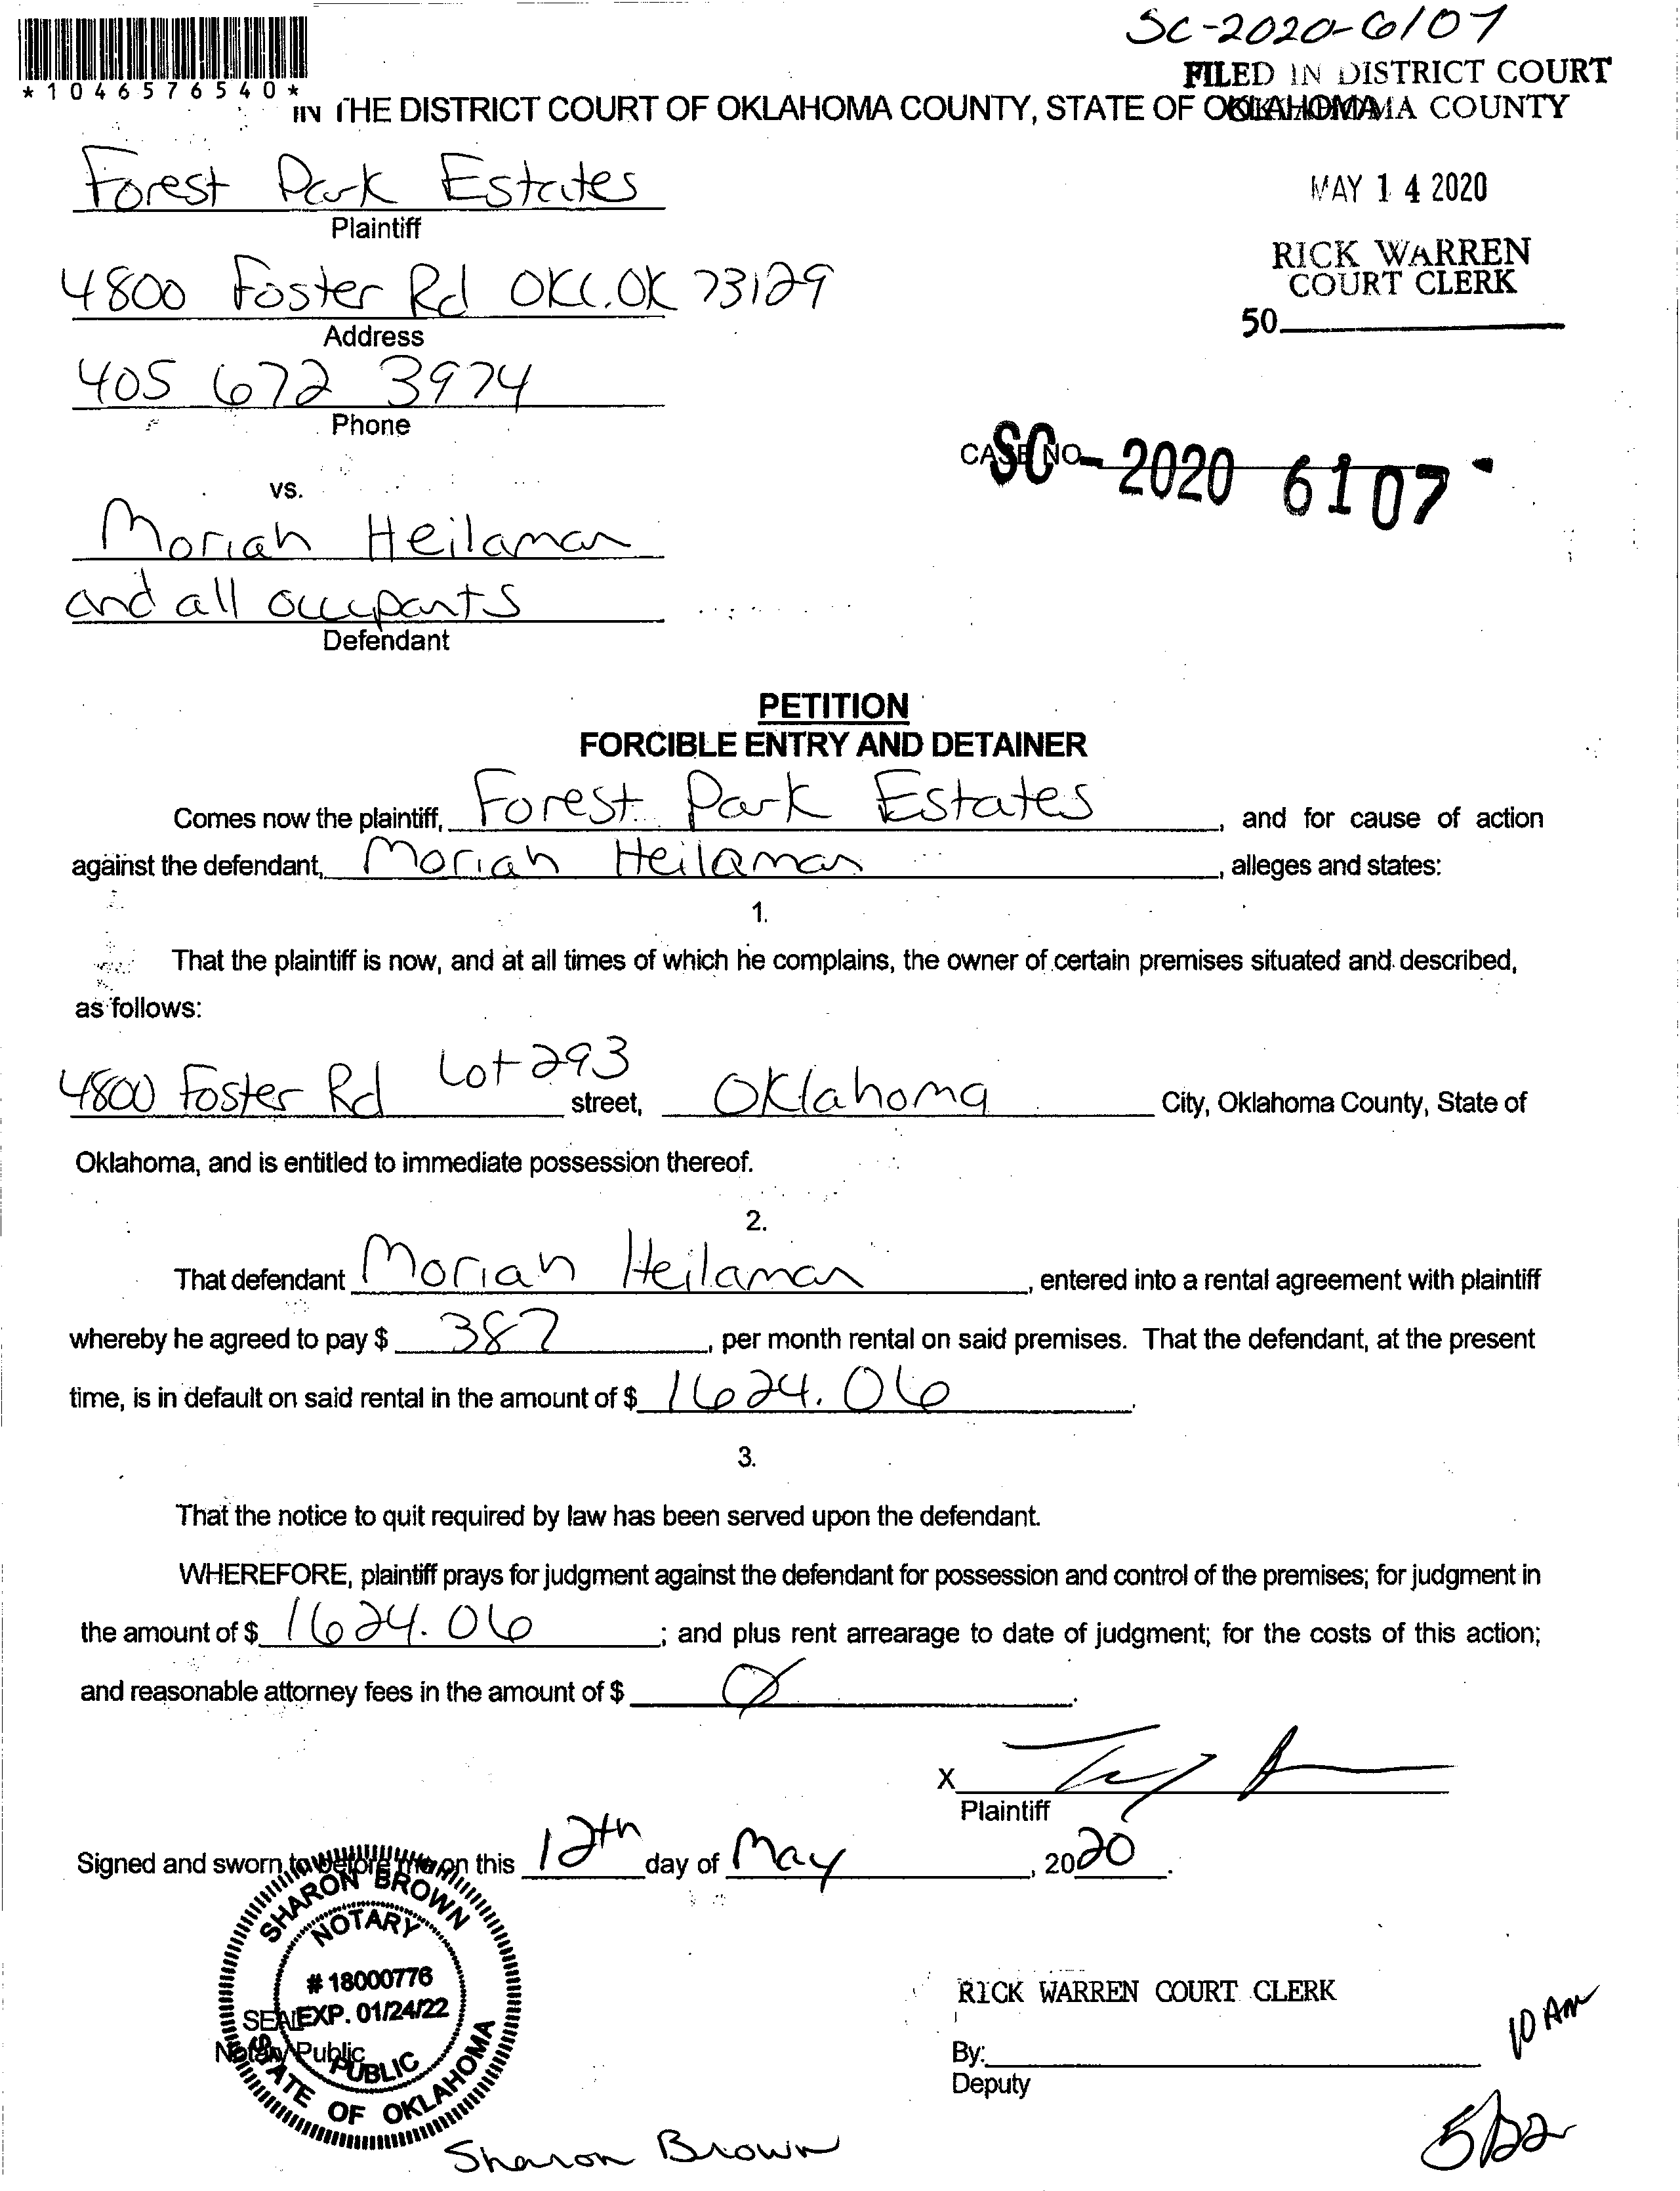 SC-2020-6107
*1046576540*
FILED IN DISTRICT COURT
OKLAHOMA COUNTY
IN THE DISTRICT COURT OF OKLAHOMA COUNTY, STATE OF OKLAHOMA
Forest Park Estates
Plaintiff
MAY 14 2020
RICK WARREN
COURT CLERK
50
4800 Foster Rd OKC.OK 73129
Address
405 672 3974
Phone
CASE NO.
SC-2020 6107
vs.
Moriah Heilaman
and all occupants
Defendant
PETITION
FORCIBLE ENTRY AND DETAINER
Comes now the plaintiff, Forest Park Estates, and for cause of action
against the defendant, Moriah Heilaman, alleges and states:
1.
That the plaintiff is now, and at all times of which he complains, the owner of certain premises situated and described,
as follows:
4800 Foster Rd Lot 293 street, Oklahoma City, Oklahoma County, State of
Oklahoma, and is entitled to immediate possession thereof.
2.
That defendant Moriah Heilaman, entered into a rental agreement with plaintiff
whereby he agreed to pay $ 387, per month rental on said premises. That the defendant, at the present
time, is in default on said rental in the amount of $ 1624.06.
3.
That the notice to quit required by law has been served upon the defendant.
WHEREFORE, plaintiff prays for judgment against the defendant for possession and control of the premises; for judgment in
the amount of $ 1624.06; and plus rent arrearage to date of judgment; for the costs of this action;
and reasonable attorney fees in the amount of $ 0.
X
Plaintiff
Signed and sworn to before me on this 12th day of May, 2020.
SHARON BROWN
NOTARY
# 18000776
SEAL
EXP. 01/24/22
Notary Public
PUBLIC
STATE OF OKLAHOMA
RICK WARREN COURT CLERK
10 AM
By:
Deputy
5/22
Sharon Brown